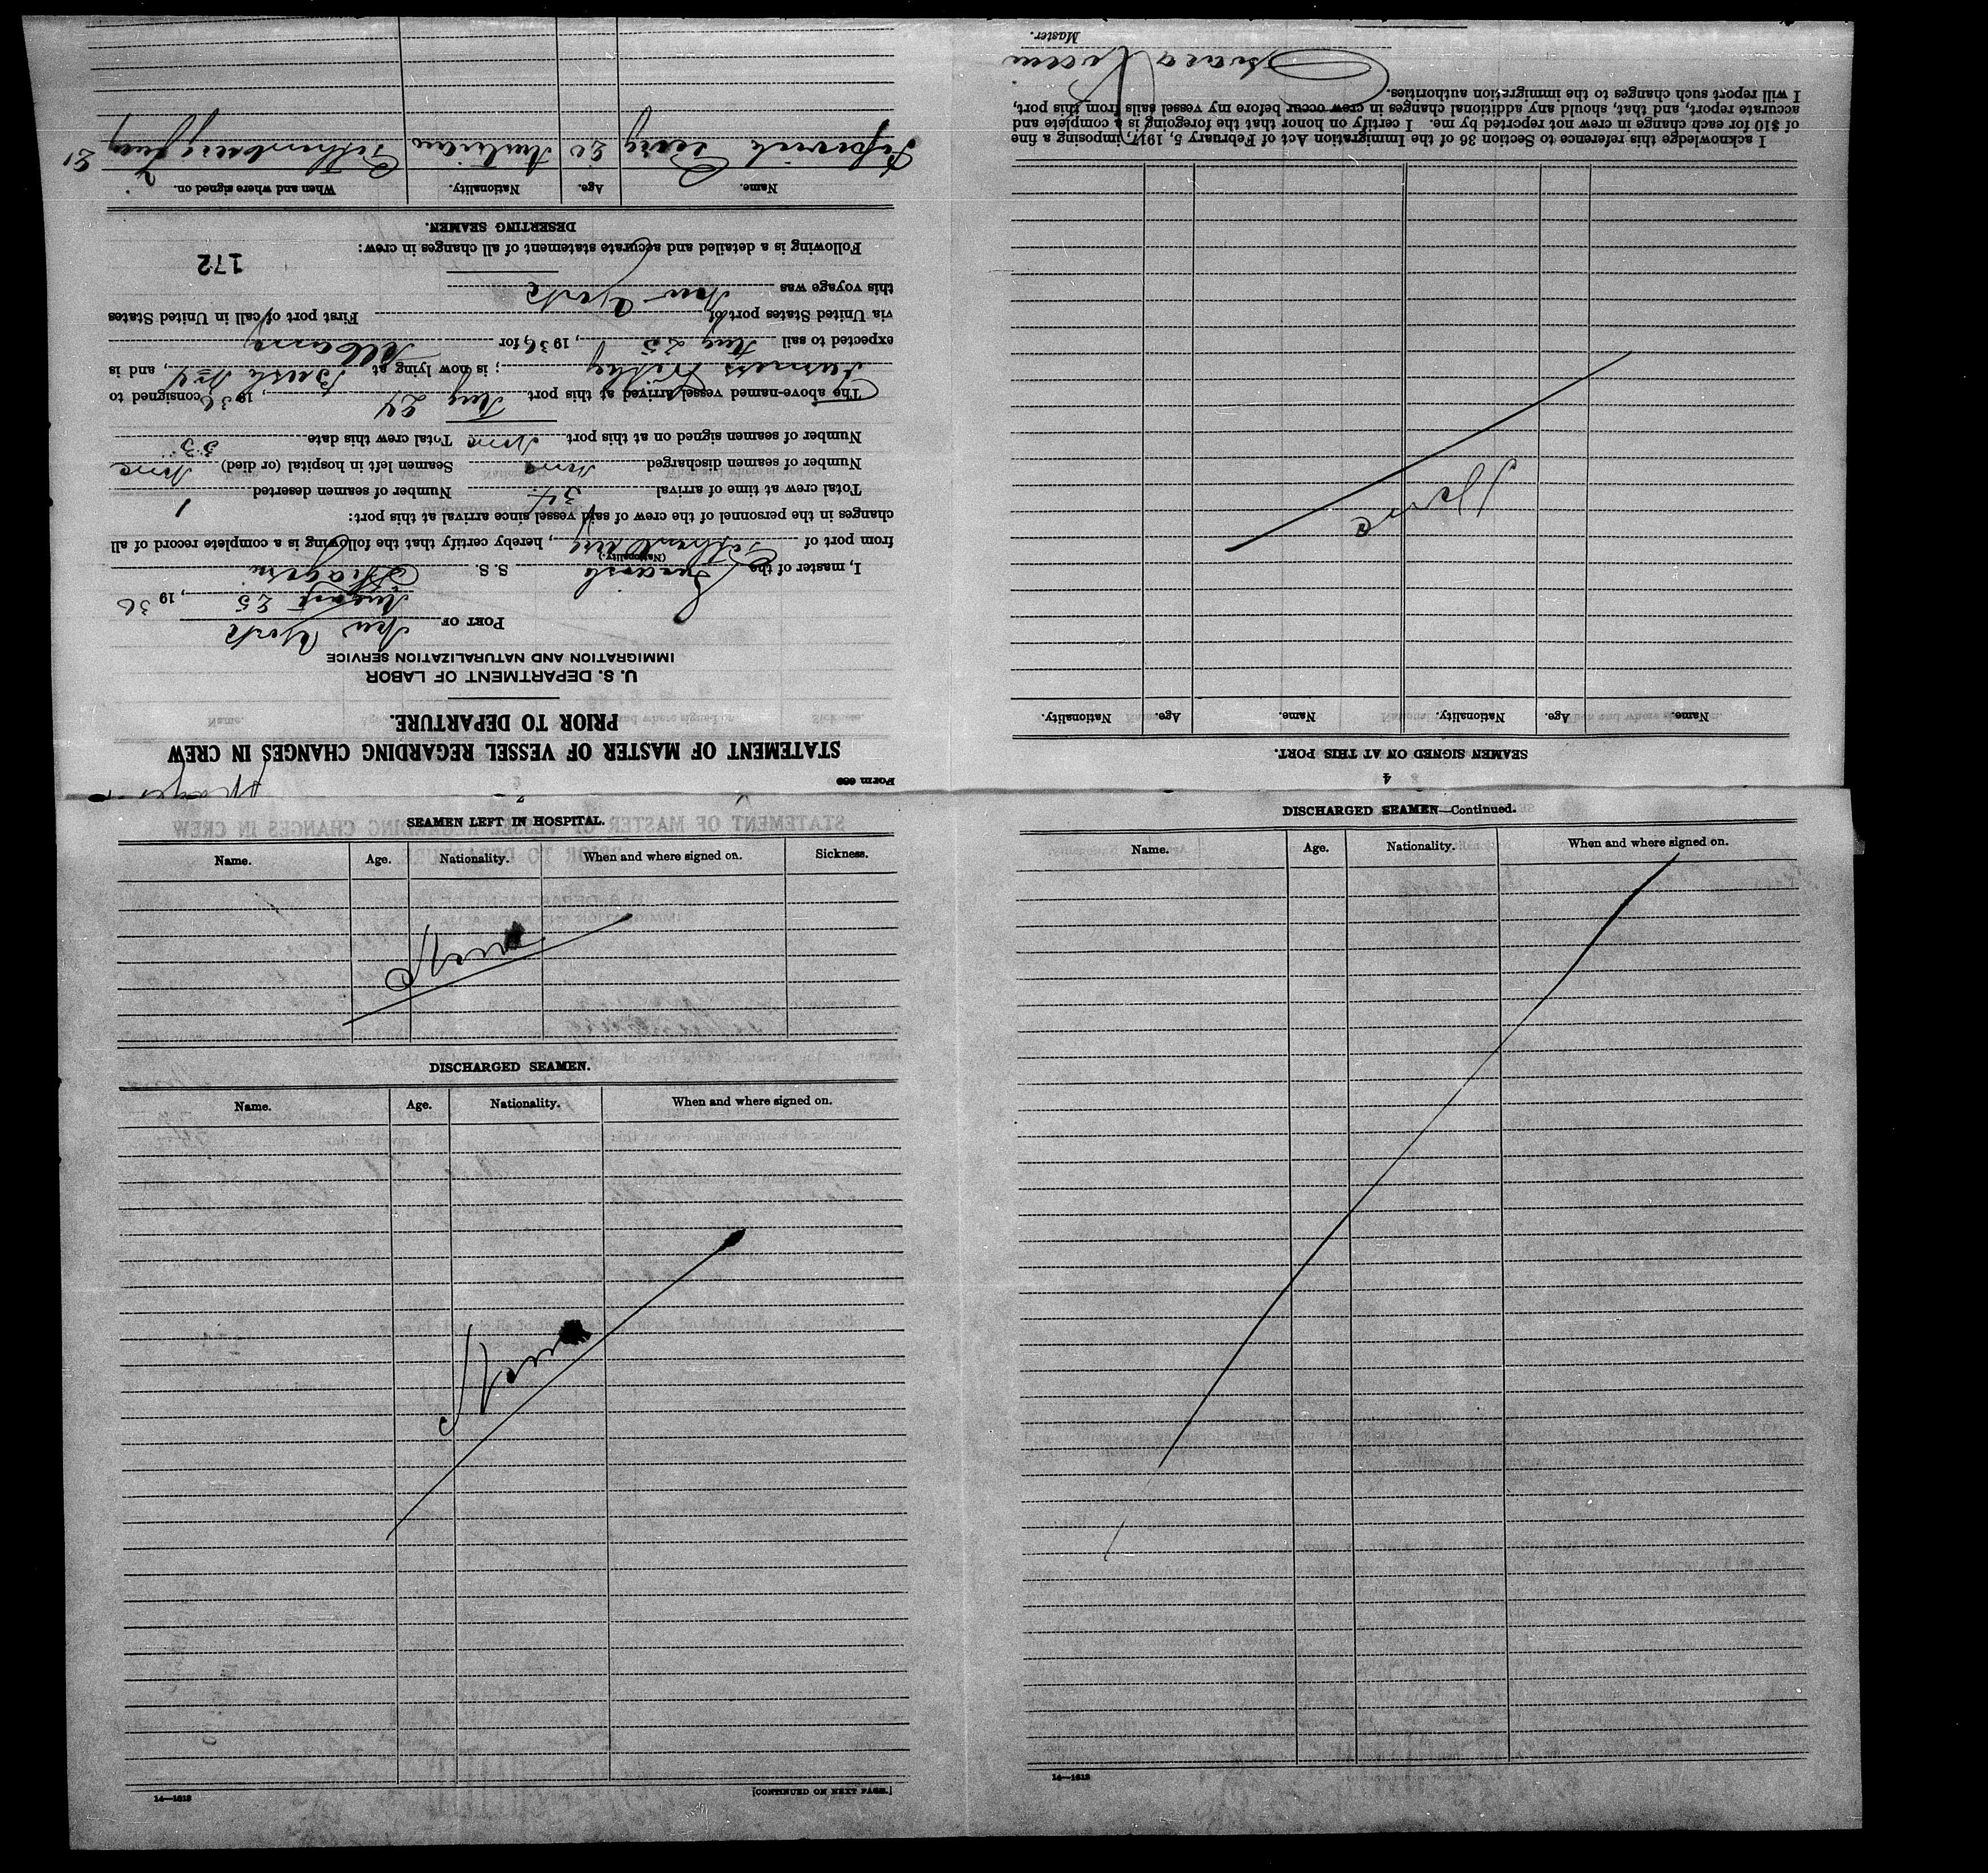 Form 689
STATEMENT OF MASTER OF VESSEL REGARDING CHANGES IN CREW
PRIOR TO DEPARTURE.
U. S. DEPARTMENT OF LABOR
IMMIGRATION AND NATURALIZATION SERVICE
PORT OF New York
August 25, 1936
I, master of the S. S.
(Nationality.)
from port of , hereby certify that the following is a complete record of all
changes in the personnel of the crew of said vessel since arrival at this port:
Total crew at time of arrival 34 Number of seamen deserted 1
Number of seamen discharged none Seamen left in hospital (or died) none
Number of seamen signed on at this port none Total crew this date 33
The above-named vessel arrived at this port Aug 24, 1936 consigned to
; is now lying at , and is
expected to sail Aug 25, 1936, for
via United States port of First port of call in United States
this voyage was New York
172
Following is a detailed and accurate statement of all changes in crew:
DESERTING SEAMEN.
Name. Age. Nationality. When and where signed on.
20
SEAMEN LEFT IN HOSPITAL.
Name. Age. Nationality. When and where signed on. Sickness.
None
DISCHARGED SEAMEN.
Name. Age. Nationality. When and where signed on.
None
14—1813
[CONTINUED ON NEXT PAGE.]
DISCHARGED SEAMEN—Continued.
Name. Age. Nationality. When and where signed on.
14—1813
4
SEAMEN SIGNED ON AT THIS PORT.
Name. Age. Nationality. Name. Age. Nationality.
None
I acknowledge this reference to Section 36 of the Immigration Act of February 5, 1917, imposing a fine
of $10 for each change in crew not reported by me. I certify on honor that the foregoing is a complete and
accurate report, and that, should any additional changes in crew occur before my vessel sails from this port,
I will report such changes to the immigration authorities.
Master.